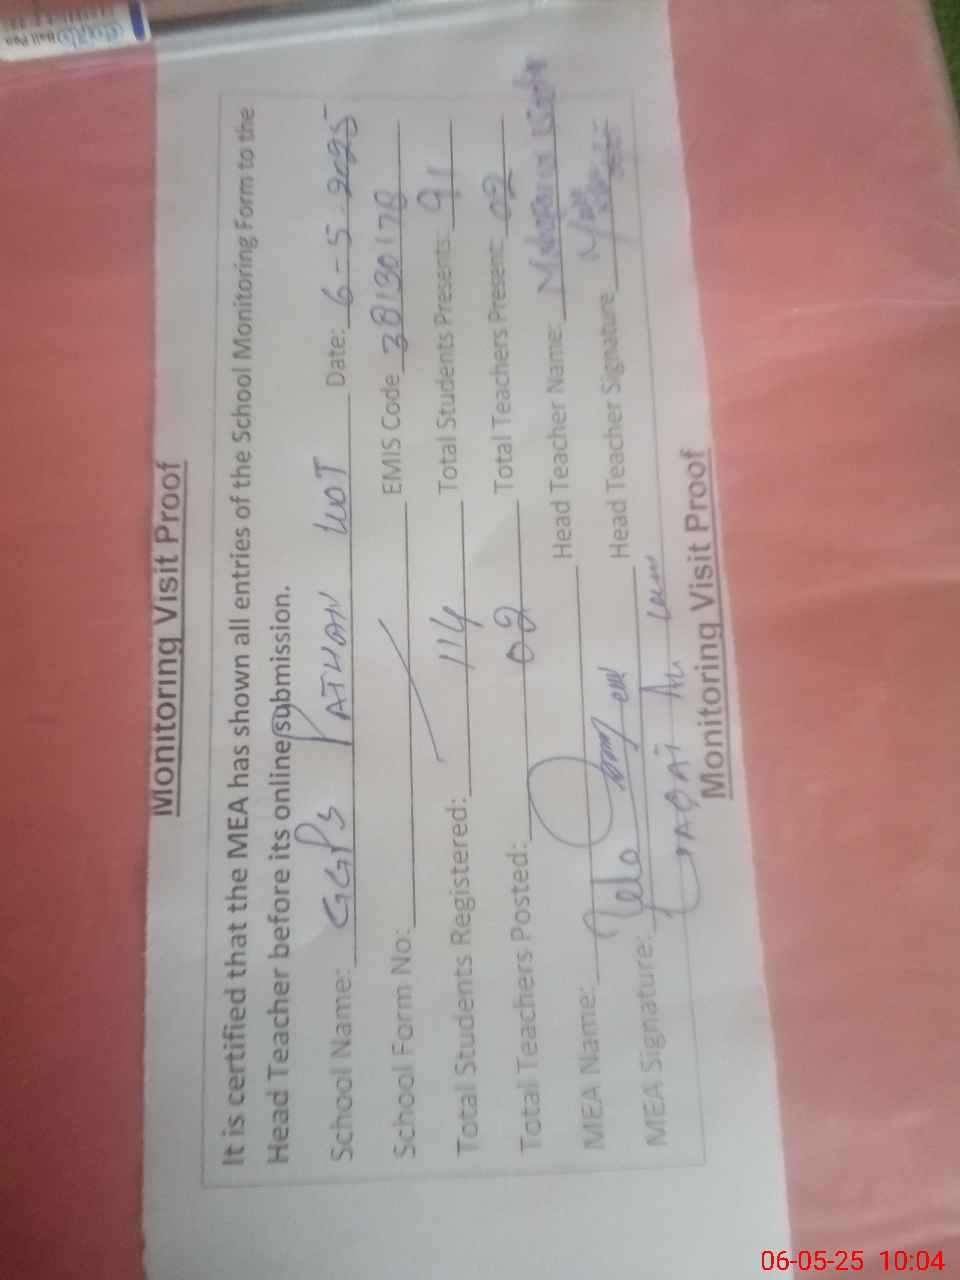 Monitoring Visit Proof
It is certified that the MEA has shown all entries of the School Monitoring Form to the
Head Teacher before its online submission.
School Name: GGPS PATHAN KOT Date: 6-5-2025
School Form No: EMIS Code 38130178
Total Students Registered: 114 Total Students Presents: 91
Total Teachers Posted: 02 Total Teachers Present: 02
MEA Name: Head Teacher Name:
MEA Signature: Head Teacher Signature
Monitoring Visit Proof
Ball Pen
06-05-25 10:04